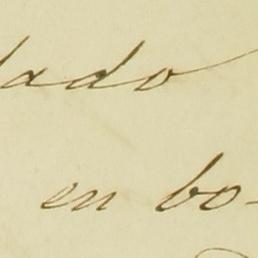 lado
en bo-